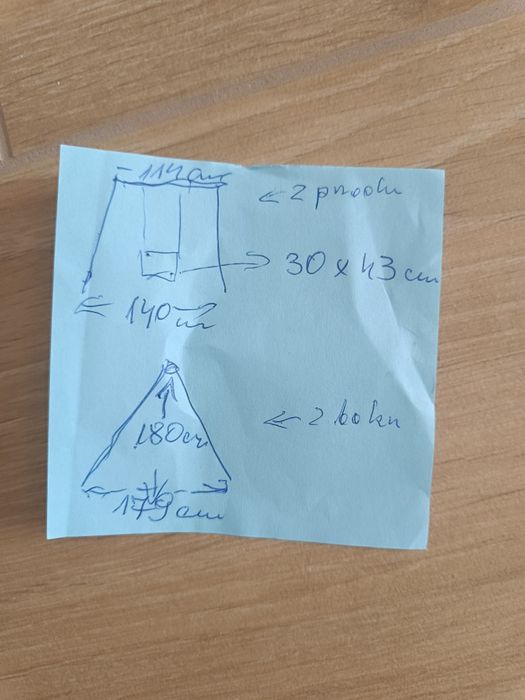 114 cm
← z przodu
→ 30 x 43 cm
140 cm
180 cm
← z boku
179 cm